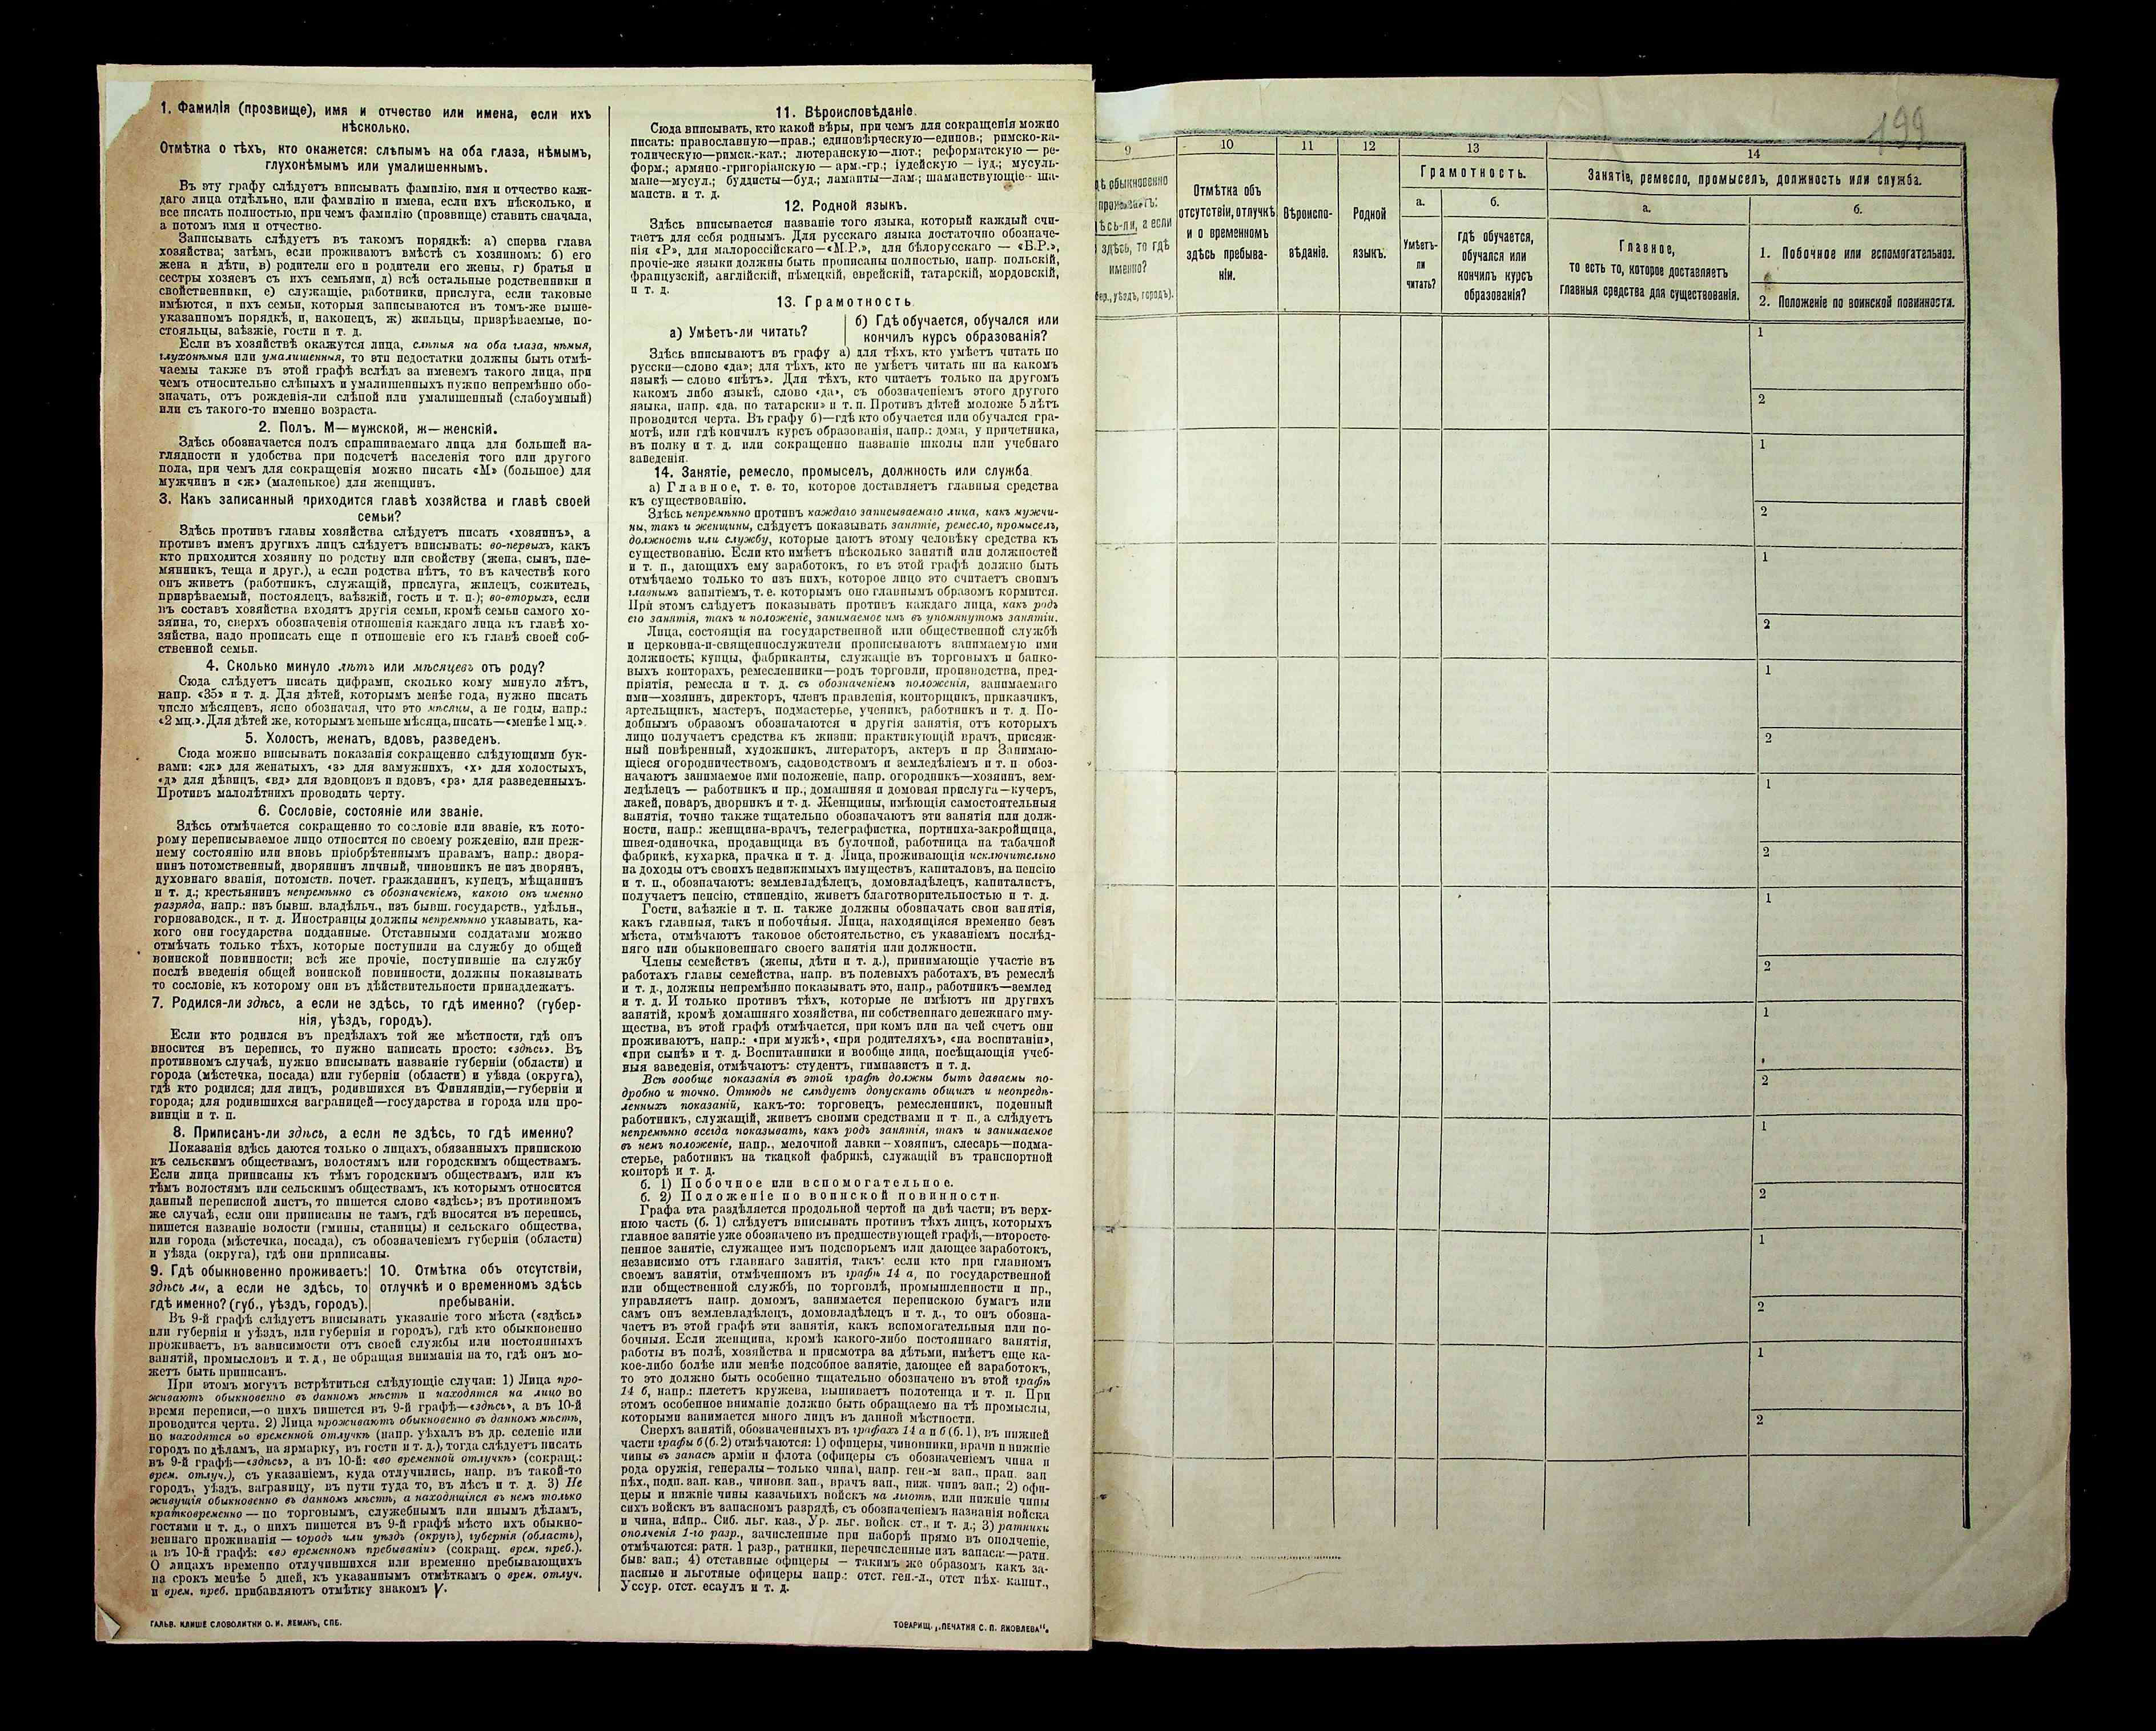 1. Фамилія (прозвище), имя и отчество или имена, если ихъ
нѣсколько.
Отмѣтка о тѣхъ, кто окажется: слѣпымъ на оба глаза, нѣмымъ,
глухонѣмымъ или умалишеннымъ.
Въ эту графу слѣдуетъ вписывать фамилію, имя и отчество каж-
даго лица отдѣльно, или фамилію и имена, если ихъ нѣсколько, и
все писать полностью, при чемъ фамилію (прозвище) ставить сначала,
а потомъ имя и отчество.
Записывать слѣдуетъ въ такомъ порядкѣ: а) сперва глава
хозяйства; затѣмъ, если проживаютъ вмѣстѣ съ хозяиномъ: б) его
жена и дѣти, в) родители его и родители его жены, г) братья и
сестры хозяевъ съ ихъ семьями, д) всѣ остальные родственники и
свойственники, е) служащіе, работники, прислуга, если таковые
имѣются, и ихъ семьи, которыя записываются въ томъ-же выше-
указанномъ порядкѣ, и, наконецъ, ж) жильцы, призрѣваемые, по-
стояльцы, заѣзжіе, гости и т. д.
Если въ хозяйствѣ окажутся лица, слѣпыя на оба глаза, нѣмыя,
глухонѣмыя или умалишенныя, то эти недостатки должны быть отмѣ-
чаемы также въ этой графѣ вслѣдъ за именемъ такого лица, при
чемъ относительно слѣпыхъ и умалишенныхъ нужно непремѣнно обо-
значать, отъ рожденія-ли слѣпой или умалишенный (слабоумный)
или съ такого-то именно возраста.
2. Полъ. М—мужской, ж—женскій.
Здѣсь обозначается полъ спрашиваемаго лица для большей на-
глядности и удобства при подсчетѣ населенія того или другого
пола, при чемъ для сокращенія можно писать «М» (большое) для
мужчинъ и «ж» (маленькое) для женщинъ.
3. Какъ записанный приходится главѣ хозяйства и главѣ своей
семьи?
Здѣсь противъ главы хозяйства слѣдуетъ писать «хозяинъ», а
противъ именъ другихъ лицъ слѣдуетъ вписывать: во-первыхъ, какъ
кто приходится хозяину по родству или свойству (жена, сынъ, пле-
мянникъ, теща и друг.), а если родства нѣтъ, то въ качествѣ кого
онъ живетъ (работникъ, служащій, прислуга, жилецъ, сожитель,
призрѣваемый, постоялецъ, заѣзжій, гость и т. п.); во-вторыхъ, если
въ составъ хозяйства входятъ другія семьи, кромѣ семьи самого хо-
зяина, то, сверхъ обозначенія отношенія каждаго лица къ главѣ хо-
зяйства, надо прописать еще и отношеніе его къ главѣ своей соб-
ственной семьи.
4. Сколько минуло лѣтъ или мѣсяцевъ отъ роду?
Сюда слѣдуетъ писать цифрами, сколько кому минуло лѣтъ,
напр. «35» и т. д. Для дѣтей, которымъ менѣе года, нужно писать
число мѣсяцевъ, ясно обозначая, что это мѣсяцы, а не годы, напр.:
«2 мц.». Для дѣтей же, которымъ меньше мѣсяца, писать—«менѣе 1 мц.».
5. Холостъ, женатъ, вдовъ, разведенъ.
Сюда можно вписывать показанія сокращенно слѣдующими бук-
вами: «ж» для женатыхъ, «з» для замужнихъ, «х» для холостыхъ,
«д» для дѣвицъ, «вд» для вдовцовъ и вдовъ, «рз» для разведенныхъ.
Противъ малолѣтнихъ проводить черту.
6. Сословіе, состояніе или званіе.
Здѣсь отмѣчается сокращенно то сословіе или званіе, къ кото-
рому переписываемое лицо относится по своему рожденію, или преж-
нему состоянію или вновь пріобрѣтеннымъ правамъ, напр.: дворя-
нинъ потомственный, дворянинъ личный, чиновникъ не изъ дворянъ,
духовнаго званія, потомств. почет. гражданинъ, купецъ, мѣщанинъ
и т. д.; крестьянинъ непремѣнно съ обозначеніемъ, какого онъ именно
разряда, напр.: изъ бывш. владѣльч., изъ бывш. государств., удѣльн.,
горнозаводск., и т. д. Иностранцы должны непремѣнно указывать, ка-
кого они государства подданные. Отставными солдатами можно
отмѣчать только тѣхъ, которые поступили на службу до общей
воинской повинности; всѣ же прочіе, поступившіе на службу
послѣ введенія общей воинской повинности, должны показывать
то сословіе, къ которому они въ дѣйствительности принадлежатъ.
7. Родился-ли здѣсь, а если не здѣсь, то гдѣ именно? (губер-
нія, уѣздъ, городъ).
Если кто родился въ предѣлахъ той же мѣстности, гдѣ онъ
вносится въ перепись, то нужно написать просто: «здѣсь». Въ
противномъ случаѣ, нужно вписывать названіе губерніи (области) и
города (мѣстечка, посада) или губерніи (области) и уѣзда (округа),
гдѣ кто родился; для лицъ, родившихся въ Финляндіи,—губерніи и
города; для родившихся заграницей—государства и города или про-
винціи и т. п.
8. Приписанъ-ли здѣсь, а если не здѣсь, то гдѣ именно?
Показанія здѣсь даются только о лицахъ, обязанныхъ припискою
къ сельскимъ обществамъ, волостямъ или городскимъ обществамъ.
Если лица приписаны къ тѣмъ городскимъ обществамъ, или къ
тѣмъ волостямъ или сельскимъ обществамъ, къ которымъ относится
данный переписной листъ, то пишется слово «здѣсь»; въ противномъ
же случаѣ, если они приписаны не тамъ, гдѣ вносятся въ перепись,
пишется названіе волости (гмины, станицы) и сельскаго общества,
или города (мѣстечка, посада), съ обозначеніемъ губерніи (области)
и уѣзда (округа), гдѣ они приписаны.
9. Гдѣ обыкновенно проживаетъ:
здѣсь ли, а если не здѣсь, то
гдѣ именно? (губ., уѣздъ, городъ).
10. Отмѣтка объ отсутствіи,
отлучкѣ и о временномъ здѣсь
пребываніи.
Въ 9-й графѣ слѣдуетъ вписывать указаніе того мѣста («здѣсь»
или губернія и уѣздъ, или губернія и городъ), гдѣ кто обыкновенно
проживаетъ, въ зависимости отъ своей службы или постоянныхъ
занятій, промысловъ и т. д., не обращая вниманія на то, гдѣ онъ мо-
жетъ быть приписанъ.
При этомъ могутъ встрѣтиться слѣдующіе случаи: 1) Лица про-
живаютъ обыкновенно въ данномъ мѣстѣ и находятся на лицо во
время переписи,—о нихъ пишется въ 9-й графѣ—«здѣсь», а въ 10-й
проводится черта. 2) Лица проживаютъ обыкновенно въ данномъ мѣстѣ,
но находятся во временной отлучкѣ (напр. уѣхалъ въ др. селеніе или
городъ по дѣламъ, на ярмарку, въ гости и т. д.), тогда слѣдуетъ писать
въ 9-й графѣ—«здѣсь», а въ 10-й: «во временной отлучкѣ» (сокращ.:
врем. отлуч.), съ указаніемъ, куда отлучились, напр. въ такой-то
городъ, уѣздъ, заграницу, въ пути туда то, въ лѣсъ и т. д. 3) Не
живущія обыкновенно въ данномъ мѣстѣ, а находящіяся въ немъ только
кратковременно — по торговымъ, служебнымъ или инымъ дѣламъ,
гостями и т. д., о нихъ пишется въ 9-й графѣ мѣсто ихъ обыкно-
веннаго проживанія — городъ или уѣздъ (округъ), губернія (область),
а въ 10-й графѣ: «во временномъ пребываніи» (сокращ. врем. преб.).
О лицахъ временно отлучившихся или временно пребывающихъ
на срокъ менѣе 5 дней, къ указаннымъ отмѣткамъ о врем. отлуч.
и врем. преб. прибавляютъ отмѣтку знакомъ V.
ГАЛЬВ. КЛИШЕ СЛОВОЛИТНИ О. И. ЛЕМАНЪ, СПБ.
11. Вѣроисповѣданіе.
Сюда вписывать, кто какой вѣры, при чемъ для сокращенія можно
писать: православную—прав.; единовѣрческую—единов.; римско-ка-
толическую—римск.-кат.; лютеранскую—лют.; реформатскую — ре-
форм.; армяно-григоріанскую — арм.-гр.; іудейскую — іуд.; мусуль-
мане—мусул.; буддисты—буд.; ламаиты—лам.; шаманствующіе— ша-
манств. и т. д.
12. Родной языкъ.
Здѣсь вписывается названіе того языка, который каждый счи-
таетъ для себя роднымъ. Для русскаго языка достаточно обозначе-
нія «Р», для малороссійскаго—«М.Р.», для бѣлорусскаго — «Б.Р.»,
прочіе-же языки должны быть прописаны полностью, напр. польскій,
французскій, англійскій, нѣмецкій, еврейскій, татарскій, мордовскій,
и т. д.
13. Грамотность.
а) Умѣетъ-ли читать?
б) Гдѣ обучается, обучался или
кончилъ курсъ образованія?
Здѣсь вписываютъ въ графу а) для тѣхъ, кто умѣетъ читать по
русски—слово «да»; для тѣхъ, кто не умѣетъ читать ни на какомъ
языкѣ — слово «нѣтъ». Для тѣхъ, кто читаетъ только на другомъ
какомъ либо языкѣ, слово «да», съ обозначеніемъ этого другого
языка, напр. «да, по татарски» и т. п. Противъ дѣтей моложе 5 лѣтъ
проводится черта. Въ графу б)—гдѣ кто обучается или обучался гра-
мотѣ, или гдѣ кончилъ курсъ образованія, напр.: дома, у причетника,
въ полку и т. д. или сокращенно названіе школы или учебнаго
заведенія.
14. Занятіе, ремесло, промыселъ, должность или служба.
а) Главное, т. е. то, которое доставляетъ главныя средства
къ существованію.
Здѣсь непремѣнно противъ каждаго записываемаго лица, какъ мужчи-
ны, такъ и женщины, слѣдуетъ показывать занятіе, ремесло, промыселъ,
должность или службу, которые даютъ этому человѣку средства къ
существованію. Если кто имѣетъ нѣсколько занятій или должностей
и т. п., дающихъ ему заработокъ, то въ этой графѣ должно быть
отмѣчаемо только то изъ нихъ, которое лицо это считаетъ своимъ
главнымъ занятіемъ, т. е. которымъ оно главнымъ образомъ кормится.
При этомъ слѣдуетъ показывать противъ каждаго лица, какъ родъ
его занятія, такъ и положеніе, занимаемое имъ въ упомянутомъ занятіи.
Лица, состоящія на государственной или общественной службѣ
и церковно-и-священнослужители прописываютъ занимаемую ими
должность; купцы, фабриканты, служащіе въ торговыхъ и банко-
выхъ конторахъ, ремесленники—родъ торговли, производства, пред-
пріятія, ремесла и т. д. съ обозначеніемъ положенія, занимаемаго
ими—хозяинъ, директоръ, членъ правленія, конторщикъ, приказчикъ,
артельщикъ, мастеръ, подмастерье, ученикъ, работникъ и т. д. По-
добнымъ образомъ обозначаются и другія занятія, отъ которыхъ
лицо получаетъ средства къ жизни: практикующій врачъ, присяж-
ный повѣренный, художникъ, литераторъ, актеръ и пр Занимаю-
щіеся огородничествомъ, садоводствомъ и земледѣліемъ и т. п. обоз-
начаютъ занимаемое ими положеніе, напр. огородникъ—хозяинъ, зем-
ледѣлецъ — работникъ и пр.; домашняя и домовая прислуга—кучеръ,
лакей, поваръ, дворникъ и т. д. Женщины, имѣющія самостоятельныя
занятія, точно также тщательно обозначаютъ эти занятія или долж-
ности, напр.: женщина-врачъ, телеграфистка, портниха-закройщица,
швея-одиночка, продавщица въ булочной, работница на табачной
фабрикѣ, кухарка, прачка и т. д. Лица, проживающія исключительно
на доходы отъ своихъ недвижимыхъ имуществъ, капиталовъ, на пенсію
и т. п., обозначаютъ: землевладѣлецъ, домовладѣлецъ, капиталистъ,
получаетъ пенсію, стипендію, живетъ благотворительностью и т. д.
Гости, заѣзжіе и т. п. также должны обозначать свои занятія,
какъ главныя, такъ и побочныя. Лица, находящіяся временно безъ
мѣста, отмѣчаютъ таковое обстоятельство, съ указаніемъ послѣд-
няго или обыкновеннаго своего занятія или должности.
Члены семействъ (жены, дѣти и т. д.), принимающіе участіе въ
работахъ главы семейства, напр. въ полевыхъ работахъ, въ ремеслѣ
и т. д., должны непремѣнно показывать это, напр., работникъ—землед
и т. д. И только противъ тѣхъ, которые не имѣютъ ни другихъ
занятій, кромѣ домашняго хозяйства, ни собственнаго денежнаго иму-
щества, въ этой графѣ отмѣчается, при комъ или на чей счетъ они
проживаютъ, напр.: «при мужѣ», «при родителяхъ», «на воспитаніи»,
«при сынѣ» и т. д. Воспитанники и вообще лица, посѣщающія учеб-
ныя заведенія, отмѣчаютъ: студентъ, гимназистъ и т. д.
Всѣ вообще показанія въ этой графѣ должны быть даваемы по-
дробно и точно. Отнюдь не слѣдуетъ допускать общихъ и неопредѣ-
ленныхъ показаній, какъ-то: торговецъ, ремесленникъ, поденный
работникъ, служащій, живетъ своими средствами и т. п., а слѣдуетъ
непремѣнно всегда показывать, какъ родъ занятія, такъ и занимаемое
въ немъ положеніе, напр., мелочной лавки—хозяинъ, слесарь—подма-
стерье, работникъ на ткацкой фабрикѣ, служащій въ транспортной
конторѣ и т. д.
б. 1) Побочное или вспомогательное.
б. 2) Положеніе по воинской повинности.
Графа эта раздѣляется продольной чертой на двѣ части; въ верх-
нюю часть (б. 1) слѣдуетъ вписывать противъ тѣхъ лицъ, которыхъ
главное занятіе уже обозначено въ предшествующей графѣ,—второсте-
пенное занятіе, служащее имъ подспорьемъ или дающее заработокъ,
независимо отъ главнаго занятія, такъ: если кто при главномъ
своемъ занятіи, отмѣченномъ въ графѣ 14 а, по государственной
или общественной службѣ, по торговлѣ, промышленности и пр.,
управляетъ напр. домомъ, занимается перепискою бумагъ или
самъ онъ землевладѣлецъ, домовладѣлецъ и т. д., то онъ обозна-
чаетъ въ этой графѣ эти занятія, какъ вспомогательныя или по-
бочныя. Если женщина, кромѣ какого-либо постояннаго занятія,
работы въ полѣ, хозяйства и присмотра за дѣтьми, имѣетъ еще ка-
кое-либо болѣе или менѣе подсобное занятіе, дающее ей заработокъ,
то это должно быть особенно тщательно обозначено въ этой графѣ
14 б, напр.: плететъ кружева, вышиваетъ полотенца и т. п. При
этомъ особенное вниманіе должно быть обращаемо на тѣ промыслы,
которыми занимается много лицъ въ данной мѣстности.
Сверхъ занятій, обозначенныхъ въ графахъ 14 а и б (б. 1), въ нижней
части графы б (б. 2) отмѣчаются: 1) офицеры, чиновники, врачи и нижніе
чины въ запасѣ арміи и флота (офицеры съ обозначеніемъ чина и
рода оружія, генералы—только чина), напр. ген-м зап., прап. зап
пѣх., подп. зап. кав., чиновн. зап., врачъ зап., ниж. чинъ зап.; 2) офи-
церы и нижніе чины казачьихъ войскъ на льготѣ, или нижніе чины
сихъ войскъ въ запасномъ разрядѣ, съ обозначеніемъ названія войска
и чина, напр.. Сиб. льг. каз., Ур. льг. войск. ст., и т. д.; 3) ратники
ополченія 1-го разр., зачисленные при наборѣ прямо въ ополченіе,
отмѣчаются: ратн. 1 разр., ратники, перечисленные изъ запаса:—ратн.
быв. зап.; 4) отставные офицеры — такимъ же образомъ какъ за-
пасные и льготные офицеры напр.: отст. ген.-л., отст пѣх. капит.,
Уссур. отст. есаулъ и т. д.
ТОВАРИЩ. „ПЕЧАТНЯ С. П. ЯКОВЛЕВА“.
199
9
обыкновенно
а если
здѣсь, то гдѣ
именно?
уѣздъ, городъ).
10
Отмѣтка объ
отсутствіи, отлучкѣ
и о временномъ
здѣсь пребыва-
ніи.
11
Вѣроиспо-
вѣданіе.
12
Родной
языкъ.
13
Грамотность.
а.
Умѣетъ-
ли
читать?
б.
гдѣ обучается,
обучался или
кончилъ курсъ
образованія?
14
Занятіе, ремесло, промыселъ, должность или служба.
а.
Главное,
то есть то, которое доставляетъ
главныя средства для существованія.
б.
1. Побочное или вспомогательное.
2. Положеніе по воинской повинности.
1
2
1
2
1
2
1
2
1
2
1
2
1
2
1
2
1
2
1
2